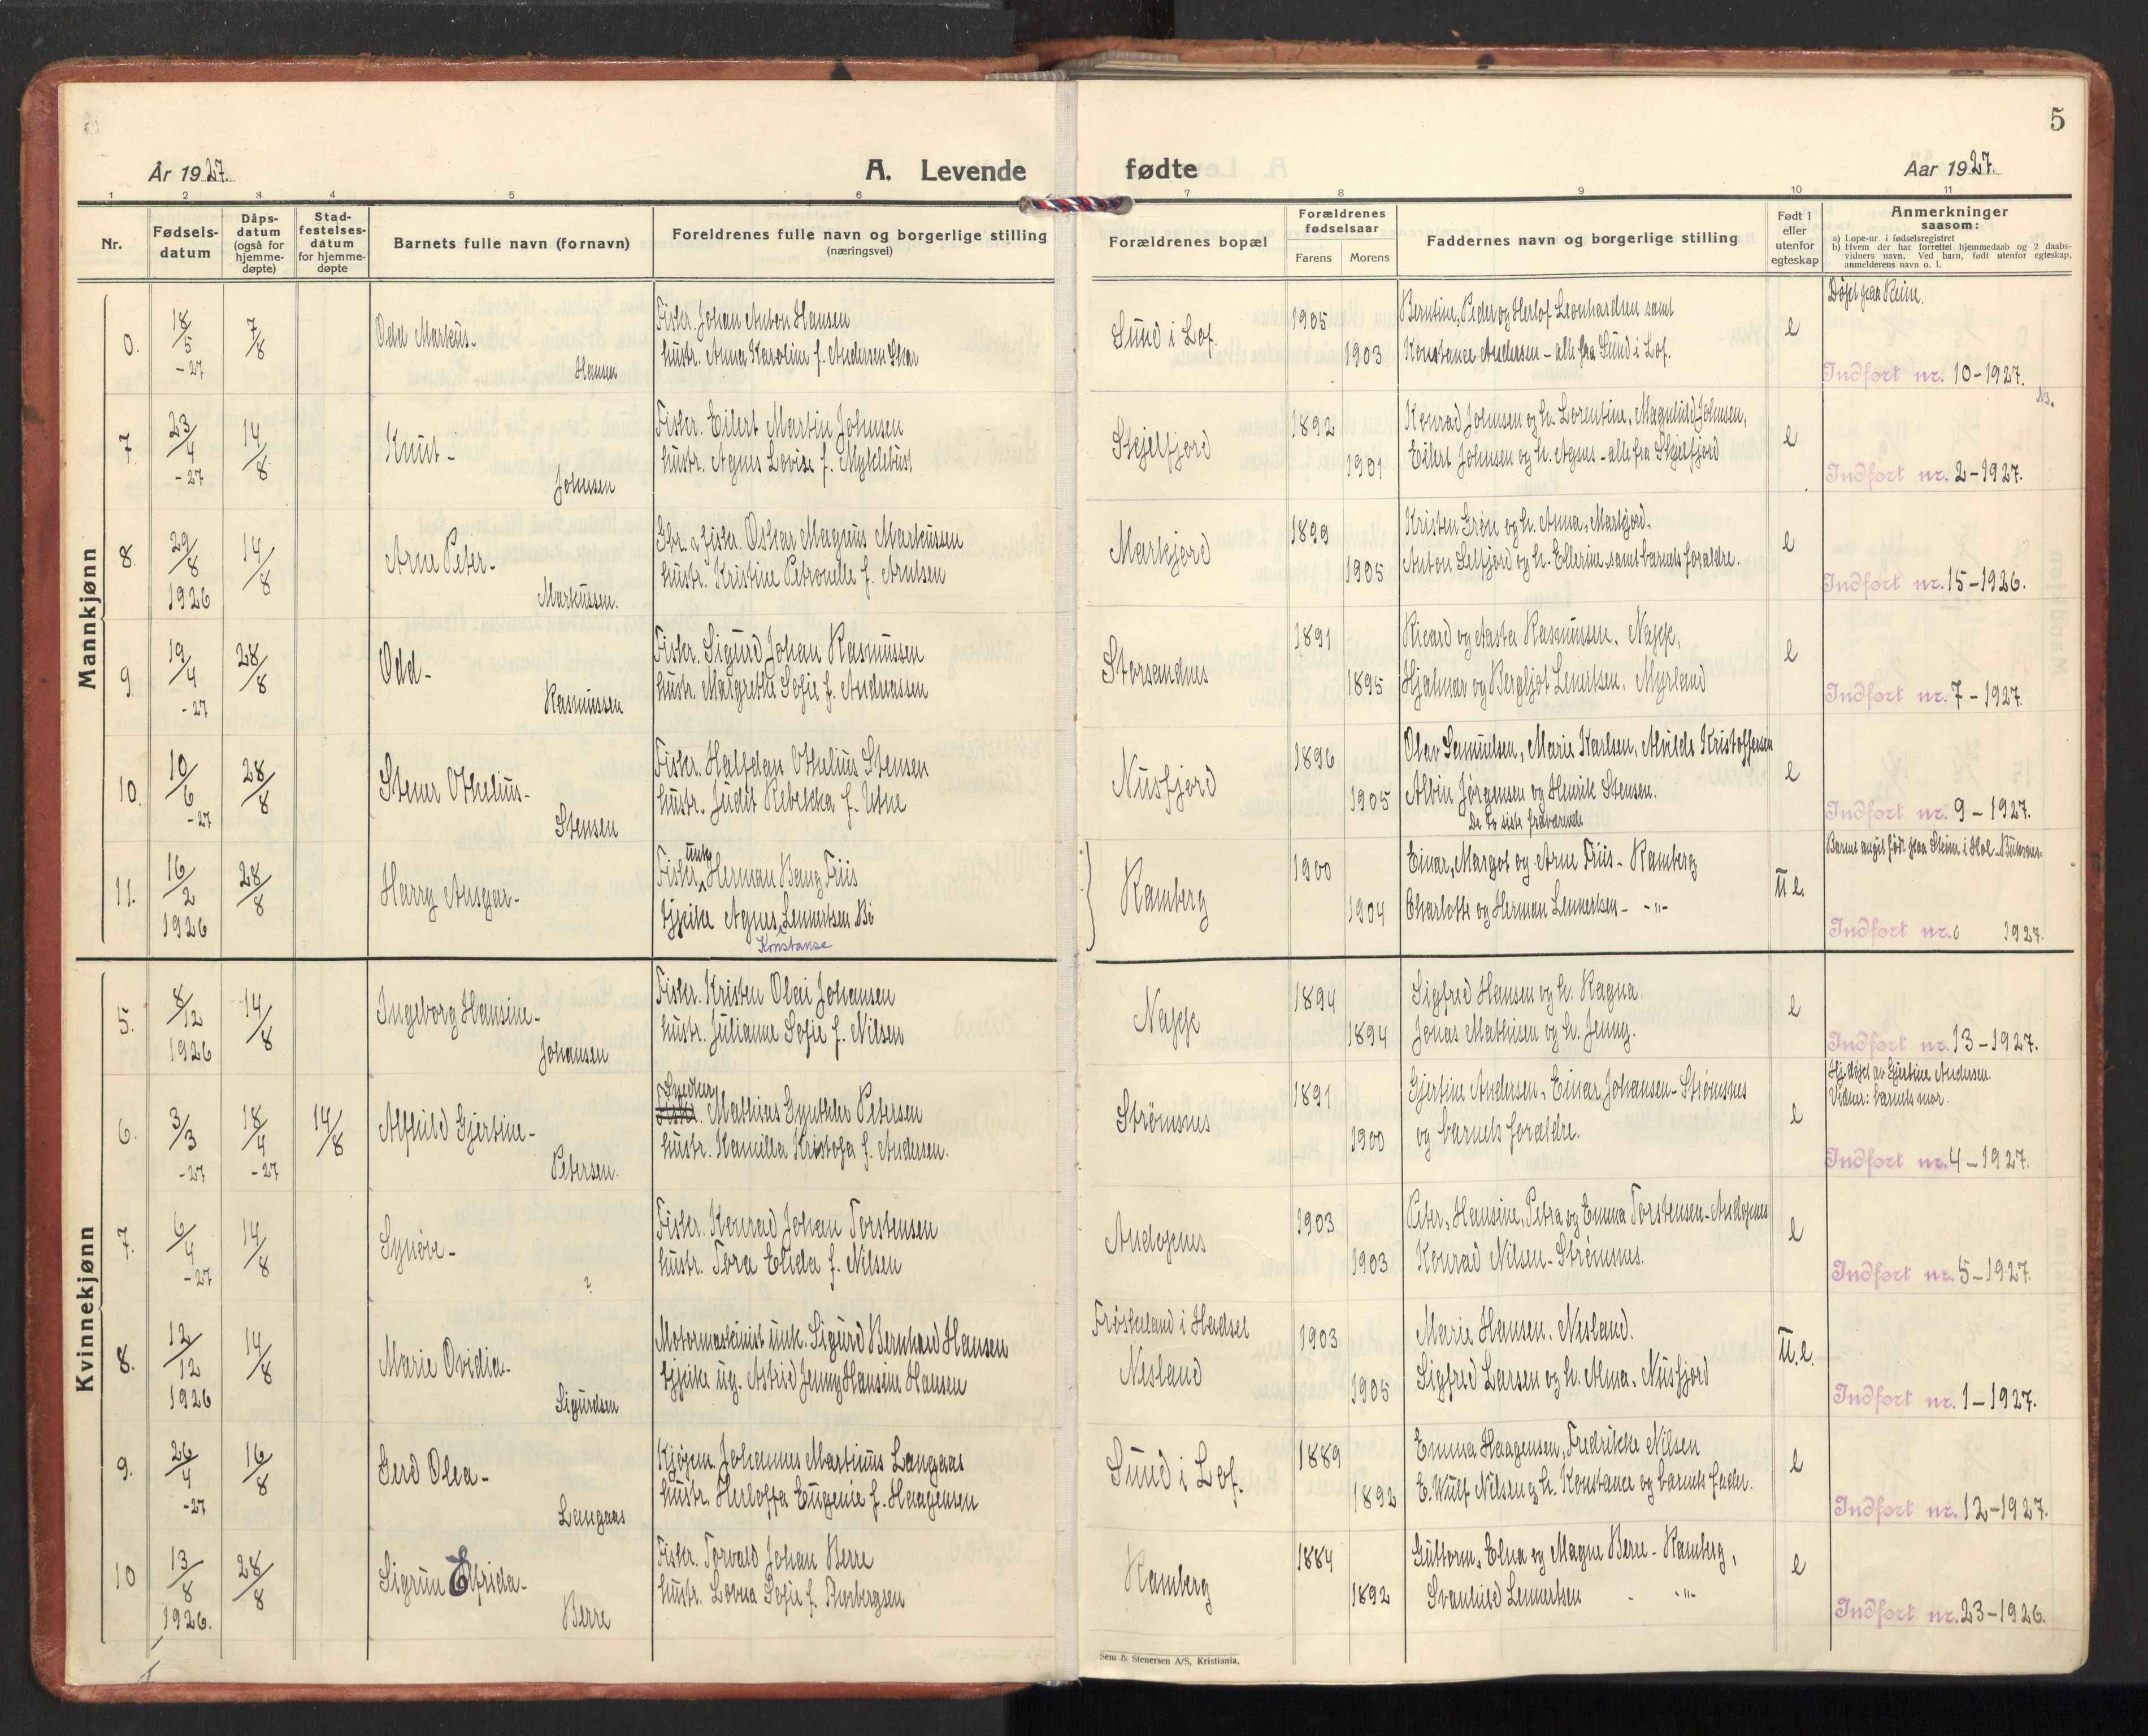 5
År 1927.
A. Levende
fødte
Aar 1927.
1 2 3 4 5 6 7 8 9 10 11
Nr.
Fødsels-
datum
Dåps-
datum
(også for
hjemme-
døpte)
Stad-
festelses-
datum
for hjemme-
døpte
Barnets fulle navn (fornavn)
Foreldrenes fulle navn og borgerlige stilling
(næringsvei)
Forældrenes bopæl
Forældrenes
fødselsaar
Farens Morens
Faddernes navn og borgerlige stilling
Født i
eller
utenfor
egteskap
Anmerkninger
saasom:
a) Løpe-nr. i fødselsregistret
b) Hvem der har forrettet hjemmedaab og 2 daabs-
vidners navn. Ved barn, født utenfor egteskap,
anmelderens navn o. l.
Mannkjønn
18/5 -27
7/8
Odd Markus-
Hansen
Fisker. Johan Anton Hansen
hustr. Anna Karoline f. Andersen
Sund i Lof.
1905
1903
Berntine, Peder og Herlof Leonhardsen samt
Konstance Andersen - alle fra Sund i Lof.
e
Døpt paa Reine.
Indført nr. 10-1927.
7.
23/4 -27
14/8
Knut-
Johnsen
Fisker. Eilert Martin Johnsen
hustr. Agnes Lovise f. Myklebust
Skjelfjord
1892
1901
Konrad Johnsen og h. Lorentine, Magnhild Johnsen,
Eilert Johnsen og h. Agnes - alle fra Skjelfjord
e
NB.
Indført nr. 2-1927.
8.
29/8 1926
14/8
Arne Peter-
Markussen.
Gbr. & fisker. Oskar Magnus Markussen
hustr. Kristine Petronelle f. Arntsen
Markjord
1899
1905
Kristen Grøn og h. Anna, Markjord.
Anton Selfjord og h. Ellerine samt barnets forældre.
e
Indført nr. 15-1926.
9.
19/4 -27
28/8
Odd-
Rasmussen
Fisker. Sigurd Johan Rasmussen
hustr. Margrethe Sofie f. Andreassen
Storsandnes
1891
1895
Ricard og Aasta Rasmussen, Napp,
Hjalmar og Bergljot Lenertsen, Myrland
e
Indført nr. 7-1927.
10.
10/6 -27
28/8
Stener Othelius-
Stensen
Fisker. Halfdan Othelius Stensen
hustr. Judit Rebekka f. Utne
Nusfjord
1896
1905
Olav Samuelsen, Marie Karlsen, Alvilde Kristoffersen
Albin Jørgensen og Henrik Stensen.
De to siste fraværende
e
Indført nr. 9-1927.
11.
16/2 1926
28/8
Harry Ansgar-
Fisker unk. Herman Bang Friis
Pike Agnes Lennertsen
Konstanse
Ramberg
1900
1904
Einar, Margot og Arne Friis - Ramberg
Charlotte og Herman Lennertsen - -"-
u e.
Indført nr. 1927.
Kvinnekjønn
5.
8/12 1926
14/8
Ingeborg Hansine-
Johansen
Fisker. Kristen Olai Johansen
hustr. Julianne Sofie f. Nilsen
Napp
1894
1894
Sigfred Hansen og h. Ragna.
Jonas Mathisen og h. Jenny.
e
Indført nr. 13-1927.
6.
3/3 -27
18/4 -27
14/8
Alfhild Gjertine-
Petersen.
Snedker
Fisker. Mathias Gynther Petersen
hustr. Kamilla Kristofa f. Andersen.
Strømsnes
1891
1900
Gjertine Andersen, Einar Johansen - Strømsnes
og barnets forældre.
e
Hj. døpt av Gjertine Andersen.
Vidner: barnets mor.
Indført nr. 4-1927.
7.
6/4 -27
14/8
Synøve-
?
Fisker. Konrad Johan Torstensen
hustr. Tora Elida f. Nilsen
Andopnes
1903
1903
Peter, Hansine, Petra og Emma Torstensen - Andopnes
Konrad Nilsen - Strømsnes.
e
Indført nr. 5-1927.
8.
12/12 1926
14/8
Marie Ovidia-
Sigurdsen
Motormaskinist unk. Sigurd Bernhard Hansen
Pike ug. Astrid Jenny Hansine Hansen
i Hadsel
Nesland
1903
1905
Marie Hansen, Nesland.
Sigfred Larsen og h. Alma, Nusfjord
u. e.
Indført nr. 1-1927.
9.
26/4 -27
16/8
Gerd Olea-
Langaas
Kjøpm. Johannes Martinus Langaas
hustr. Herloffa Eugenie f. Haagensen
Sund i Lof.
1889
1892
Emma Haagensen, Fredrikke Nilsen
E. Wulf Nilsen og h. Konstance og barnets fader.
e
Indført nr. 12-1927.
10
13/8 1926.
28/8
Sigrun Elfrida-
Berre
Fisker. Torvald Johan Berre
hustr. Lovna Sofie f. Thorbergsen
Ramberg
1884
1892
Guttorm, Elna og Magne Berre - Ramberg,
Svanhild Lennertsen - -"-
e
Indført nr. 23-1926.
Sem & Stenersen A/S, Kristiania.